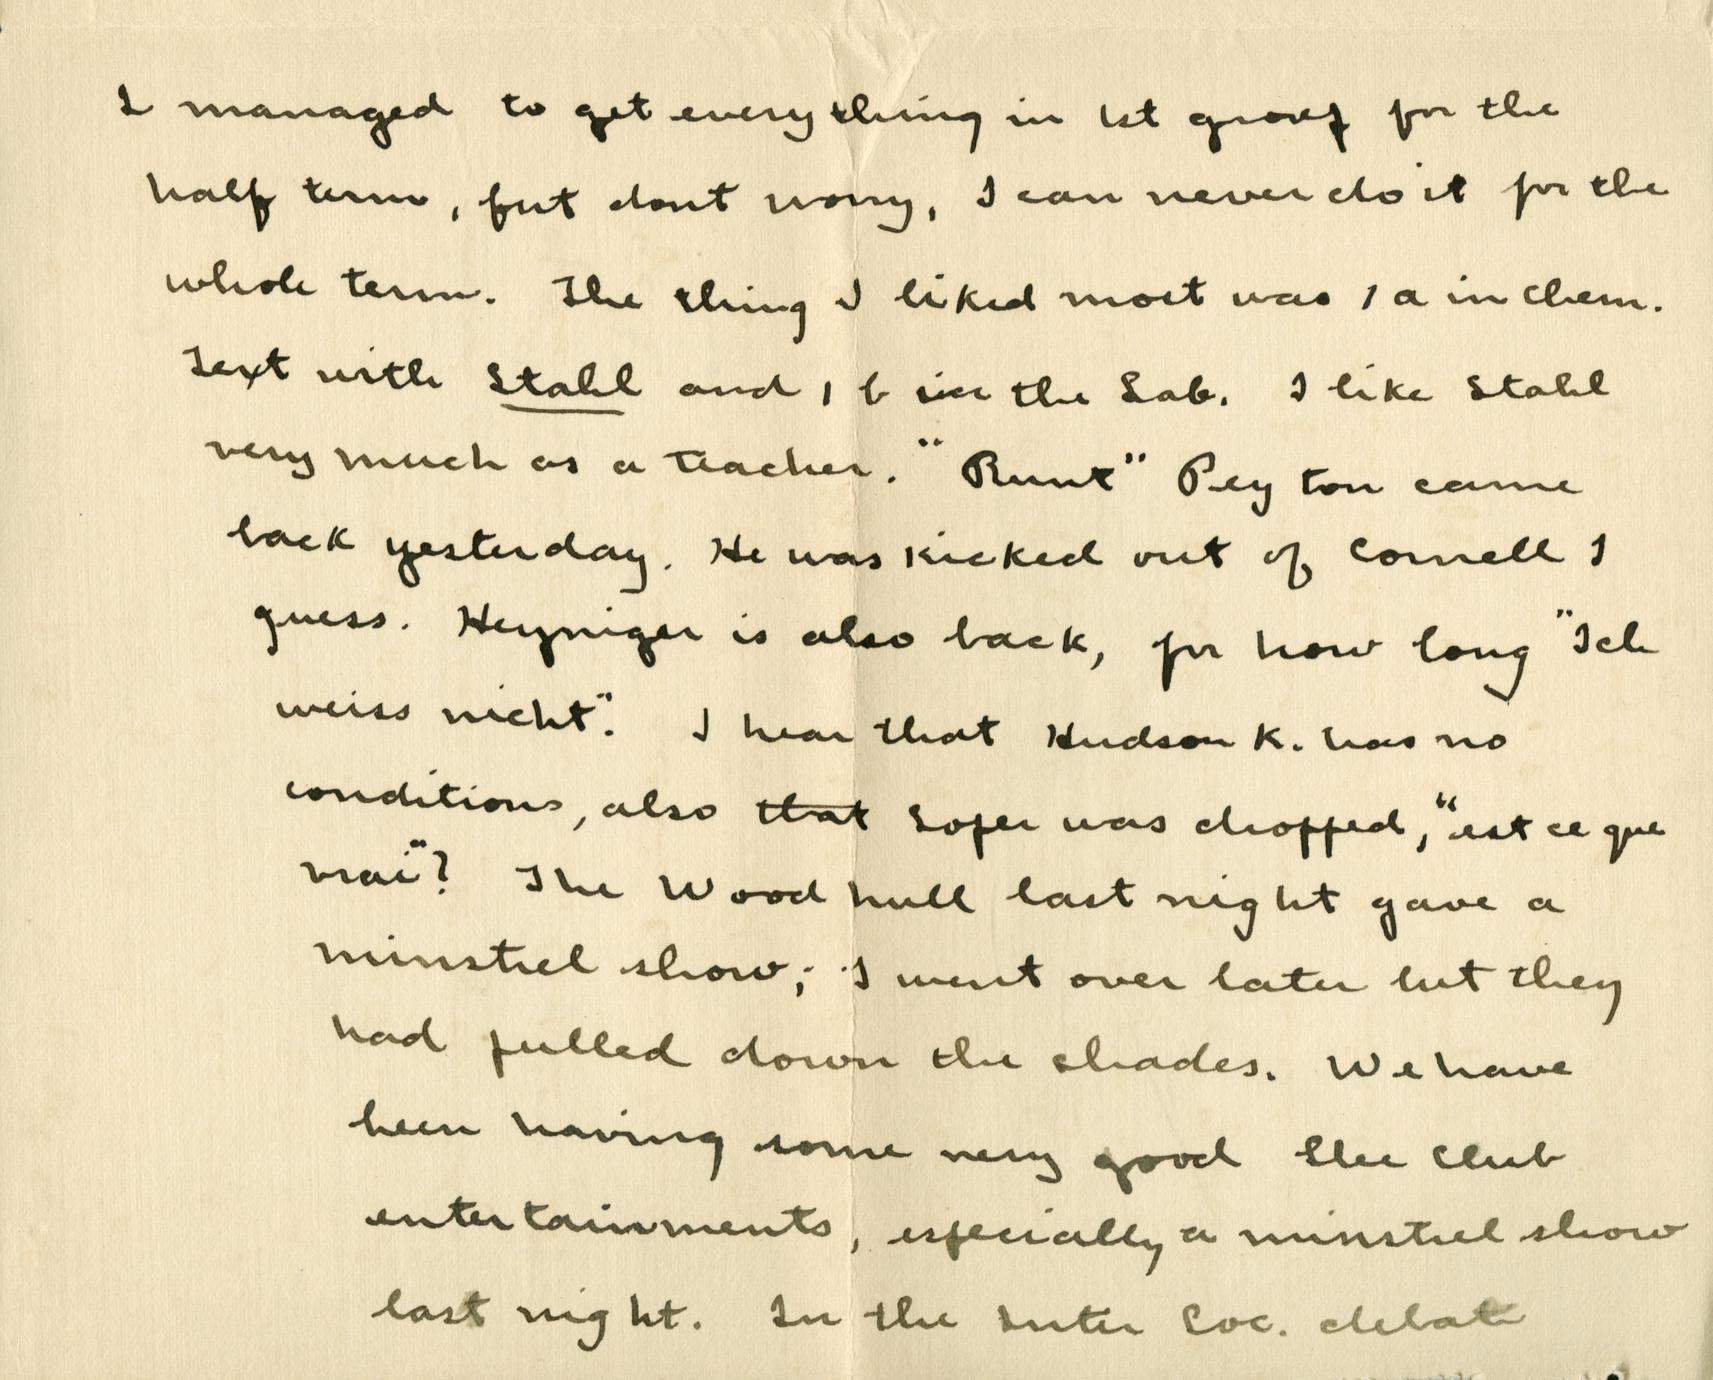 I managed to get everything in 1st group for the
half term, but dont worry, I can never do it for the
whole term. The thing I liked most was 1 a in Chem.
Text with Stahl and 1 b in the Lab. I like Stahl
very much as a teacher. "Runt" Peyton came
back yesterday. He was kicked out of Cornell I
guess. Heyniger is also back, for how long "Ich
weiss nicht". I hear that Hudson K. has no
conditions, also that Loper was dropped, "est ce que
vrai"? The Woodhull last night gave a
minstrel show; I went over later but they
had pulled down the shades. We have
been having some very good Glee Club
entertainments, especially a minstrel show
last night. In the Inter Soc. debate